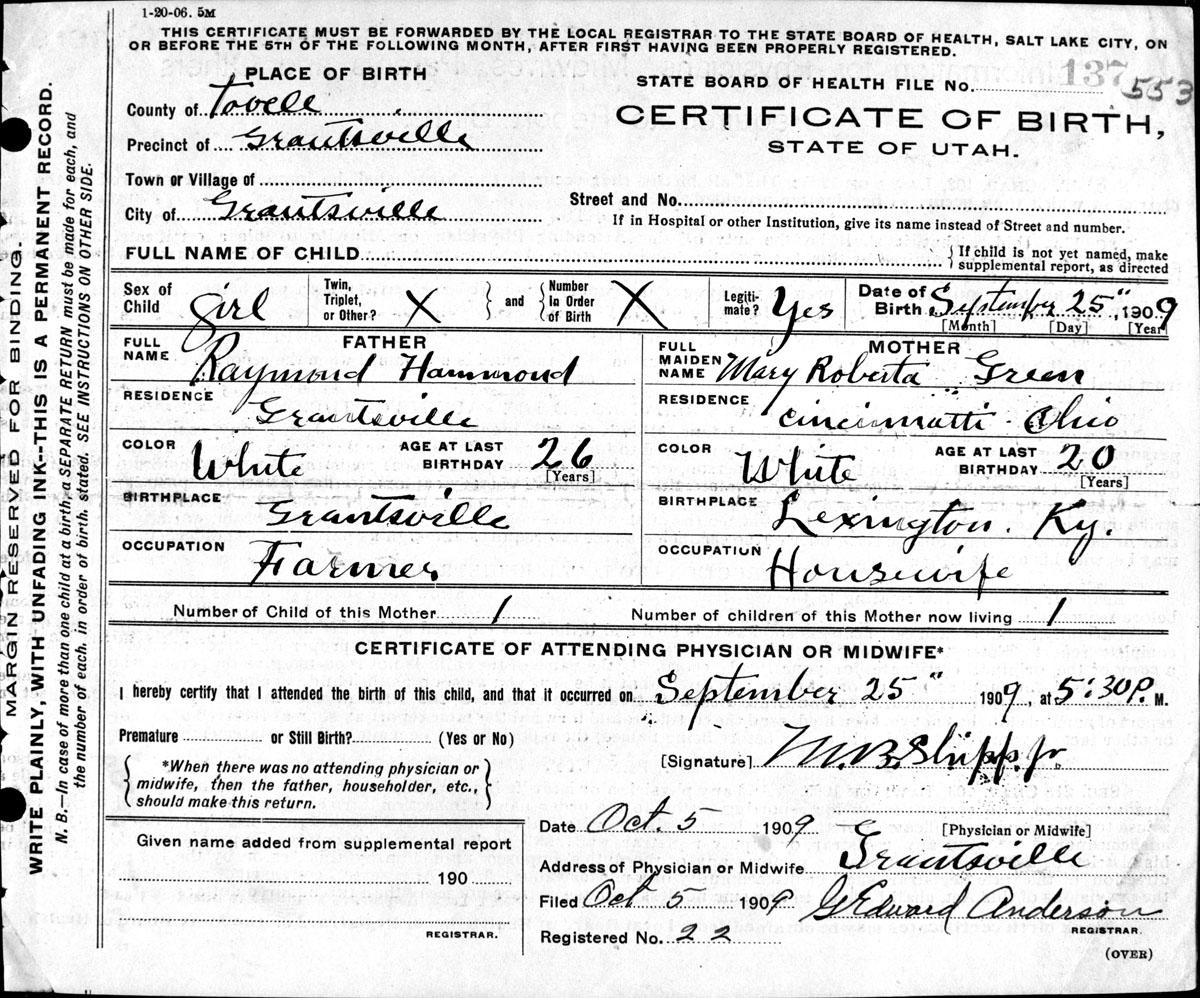 1-20-06. 5M
THIS CERTIFICATE MUST BE FORWARDED BY THE LOCAL REGISTRAR TO THE STATE BOARD OF HEALTH, SALT LAKE CITY, ON
OR BEFORE THE 5TH OF THE FOLLOWING MONTH, AFTER FIRST HAVING BEEN PROPERLY REGISTERED.
MARGIN RESERVED FOR BINDING.
WRITE PLAINLY, WITH UNFADING INK--THIS IS A PERMANENT RECORD.
N. B.—In case of more than one child at a birth, a SEPARATE RETURN must be made for each, and
the number of each, in order of birth, stated. SEE INSTRUCTIONS ON OTHER SIDE.
PLACE OF BIRTH
County of Tooele
Precinct of Grantsville
Town or Village of
City of Grantsville
STATE BOARD OF HEALTH FILE No. 137 553
CERTIFICATE OF BIRTH,
STATE OF UTAH.
Street and No.
If in Hospital or other Institution, give its name instead of Street and number.
FULL NAME OF CHILD
{If child is not yet named, make
supplemental report, as directed
Sex of Child girl
Twin, Triplet, or Other? X } and { Number In Order of Birth X
Legiti-mate? Yes
Date of Birth September 25", 1909
[Month] [Day] [Year]
FATHER
FULL NAME Raymond Hammond
RESIDENCE Grantsville
COLOR White AGE AT LAST BIRTHDAY 26 [Years]
BIRTHPLACE Grantsville
OCCUPATION Farmer
MOTHER
FULL MAIDEN NAME Mary Roberta Green
RESIDENCE Cincinnatti Ohio
COLOR White AGE AT LAST BIRTHDAY 20 [Years]
BIRTHPLACE Lexington. Ky.
OCCUPATION Housewife
Number of Child of this Mother 1 Number of children of this Mother now living 1
CERTIFICATE OF ATTENDING PHYSICIAN OR MIDWIFE*
I hereby certify that I attended the birth of this child, and that it occurred on September 25" 1909, at 5:30P. M.
Premature or Still Birth? (Yes or No)
{*When there was no attending physician or
midwife, then the father, householder, etc.,
should make this return.}
[Signature] M. B. Shipp. Jr.
[Physician or Midwife]
Date Oct. 5 1909
Address of Physician or Midwife Grantsville
Filed Oct 5 1909 G Edward Anderson
REGISTRAR.
Registered No. 22
Given name added from supplemental report
190
REGISTRAR.
(OVER)